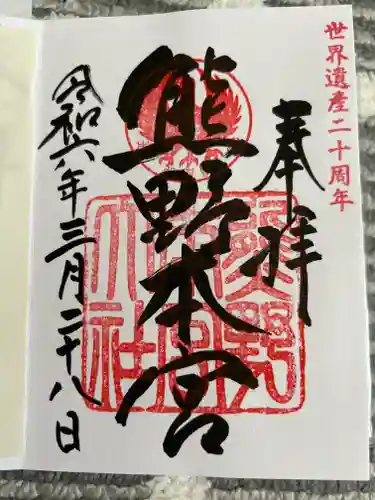 世界遺産二十周年
奉拝
熊野本宮
令和六年三月二十八日
熊野本宮大社